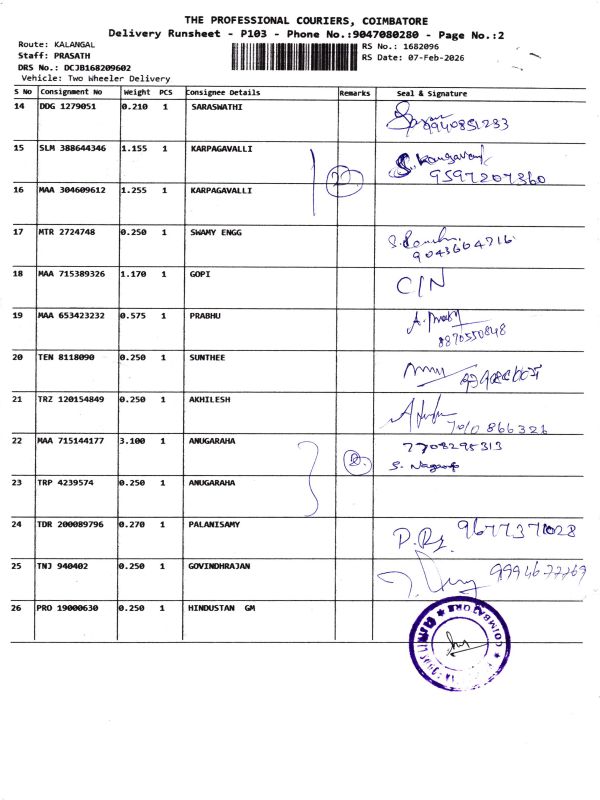 THE PROFESSIONAL COURIERS, COIMBATORE
Delivery Runsheet - P103 - Phone No.:9047080280 - Page No.:2
Route: KALANGAL
RS No.: 1682096
Staff: PRASATH
RS Date: 07-Feb-2026
DRS No.: DCJB168209602
Vehicle: Two Wheeler Delivery
S No Consignment No Weight PCS Consignee Details Remarks Seal & Signature
14 DDG 1279051 0.210 1 SARASWATHI
9940851233
15 SLM 388644346 1.155 1 KARPAGAVALLI
9597207360
16 MAA 304609612 1.255 1 KARPAGAVALLI
17 MTR 2724748 0.250 1 SWAMY ENGG
9043604716
18 MAA 715389326 1.170 1 GOPI C/N
19 MAA 653423232 0.575 1 PRABHU
8870550848
20 TEN 8118090 0.250 1 SUNTHEE
21 TRZ 120154849 0.250 1 AKHILESH
7010 866326
22 MAA 715144177 3.100 1 ANUGARAHA 7708295313
23 TRP 4239574 0.250 1 ANUGARAHA
24 TDR 200089796 0.270 1 PALANISAMY
25 TNJ 940402 0.250 1 GOVINDHRAJAN
26 PRO 19000630 0.250 1 HINDUSTAN GM
COIMBATORE